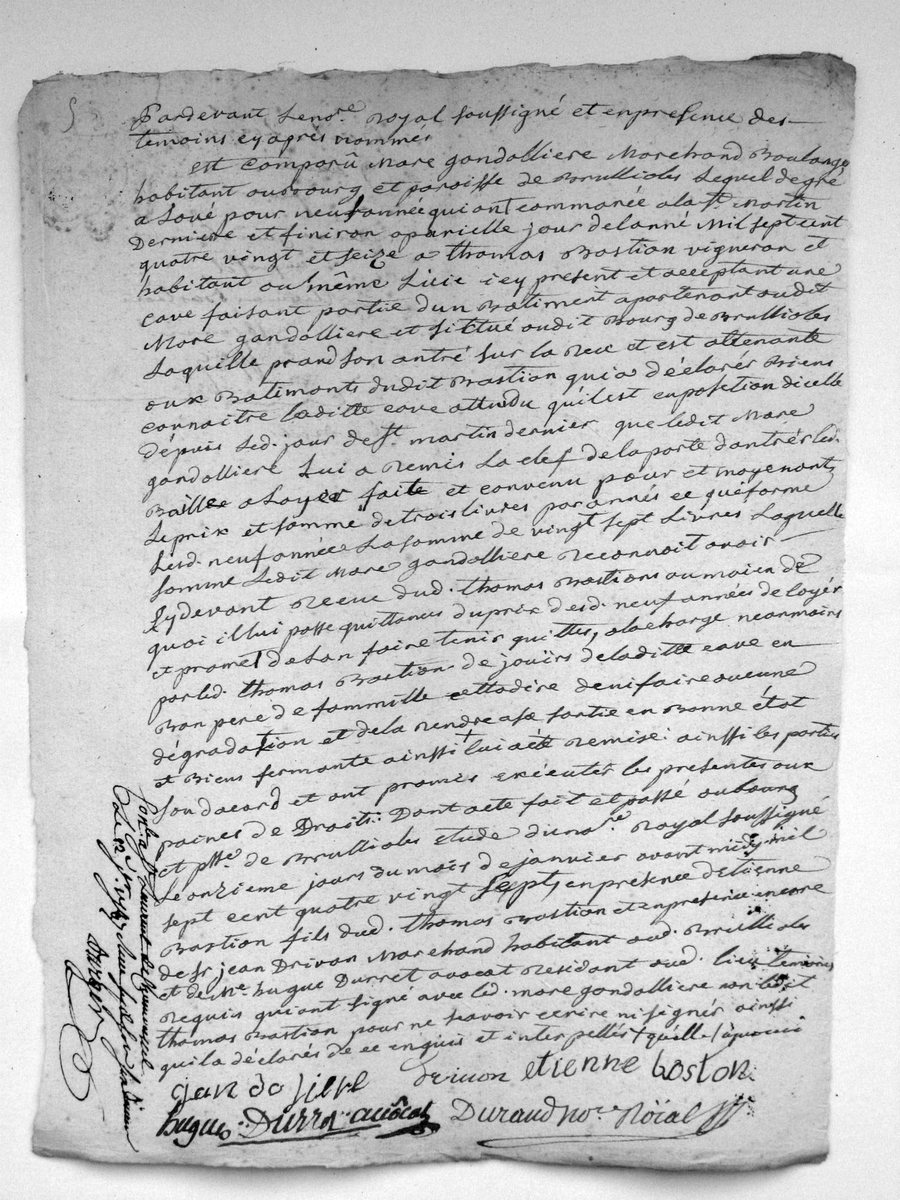 Pardevant Leno.re Royal soussigné et enpresence des
temoins cy aprés nommés
est comparû Marc gandolliere Marchand Boulangé
habitant aubourg et paroisse de Brullioles Lequel degré
a Loué pour neuf année qui ont commancé ala St. Martin
Derniere et finiron a parielle jour delanné Mil sept cent
quatre vingt et seize a thomas Bastion vigneron et
habitant au même Lieu icy present et acceptant une
cave faisant partie dun Batiment apartenant audit
Marc gandolliere et sittué audit Bourg de Brullioles
Laquille prand son antré sur la Rue et est attenante
aux Batiments dudit Bastion qui a déclarés Biens
connaitre laditte cave attendu quil est en position dicelle
dépuis Led. jour de St. martin dernier que ledit Marc
gandolliere Lui a Remis La clef de la porte dantrés led.
Baille a Loyer faite et convenu pour et moyenant
Le prix et somme de trois livres par annés ce qui forme
Lesd. neuf année La somme de vingt sept Livres Laquelle
somme Ledit Marc gandolliere Reconnoit avoir
Cydevant Recue dud. thomas Bastions au moien de
quoi il lui passe quittances du prix desd. neuf années de loyér
et promet de Lan faire tenir quittes, alacharge néanmoins
par led. thomas Bastion de jouïrs de laditte cave en
Bon pere de fammille cettadire de ni faire aucune
dégradation et de la Rendre a sa sortie en Bonne état
et Biens fermante ainssi lui a été Remise: ainssi les parties
son dacord et ont promés exécuter les presentes aux
paines de Droits: Dont acte fait et passé aubourg
et psse. de Brullioles Etude dunore. Royal soussigné
Le onzieme jours du mois de janvier avant midy mil
sept cent quatre vingt sept, en presence detienne
Bastion fils dud. thomas Bastion et en presence encore
de Sr jean Drivon Marchand habitant aud. Brullioles
et de Me. hugue Durret avocat Residant aud. lieu temoins
Requis qui ont signé avec led. marc gandolliere non ledit
thomas Bastion pour ne savoir ecrire ni signér ainssi
quil a déclarés de ce enquis et interpellés
drivon etienne bastion
hugue Durret avocat Durand nore. Roïal
Laurent de Chamousset